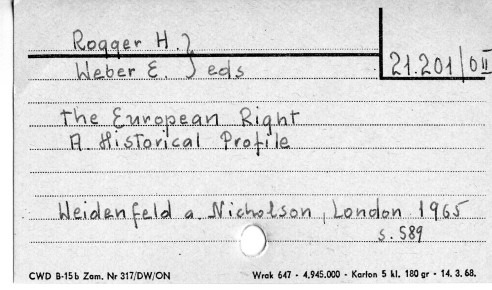 Rogger H. }
Weber E. } eds
21.201/OII
The European Right
A. Historical Profile
Weidenfeld a. Nicholson, London 1965
s. 589
CWD B-15b Zam. Nr 317/DW/ON Wrak 647 - 4,945.000 - Karton 5 kl. 180 gr - 14. 3. 68.